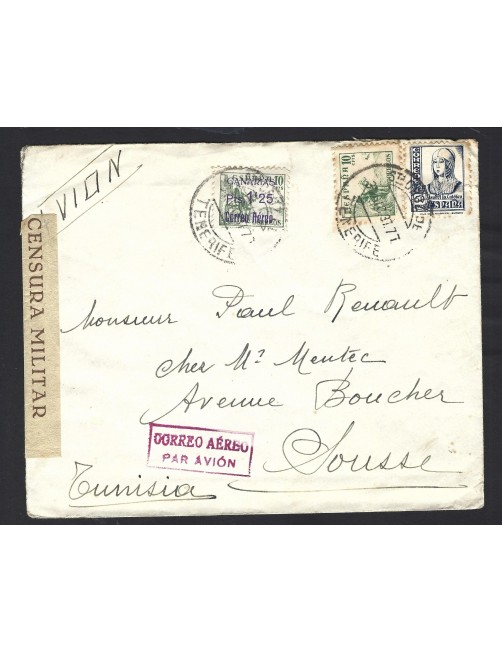 VION
CENSURA MILITAR
CANARIAS
Pts. 1'25
Correo Aéreo
10
TENERIFE
10
TENERIFE
CORREOS
ESPAÑA
Monsieur Paul Renault
cher Mr Mentec
Avenue Boucher
Sousse
Tunisia
CORREO AÉREO
PAR AVIÓN